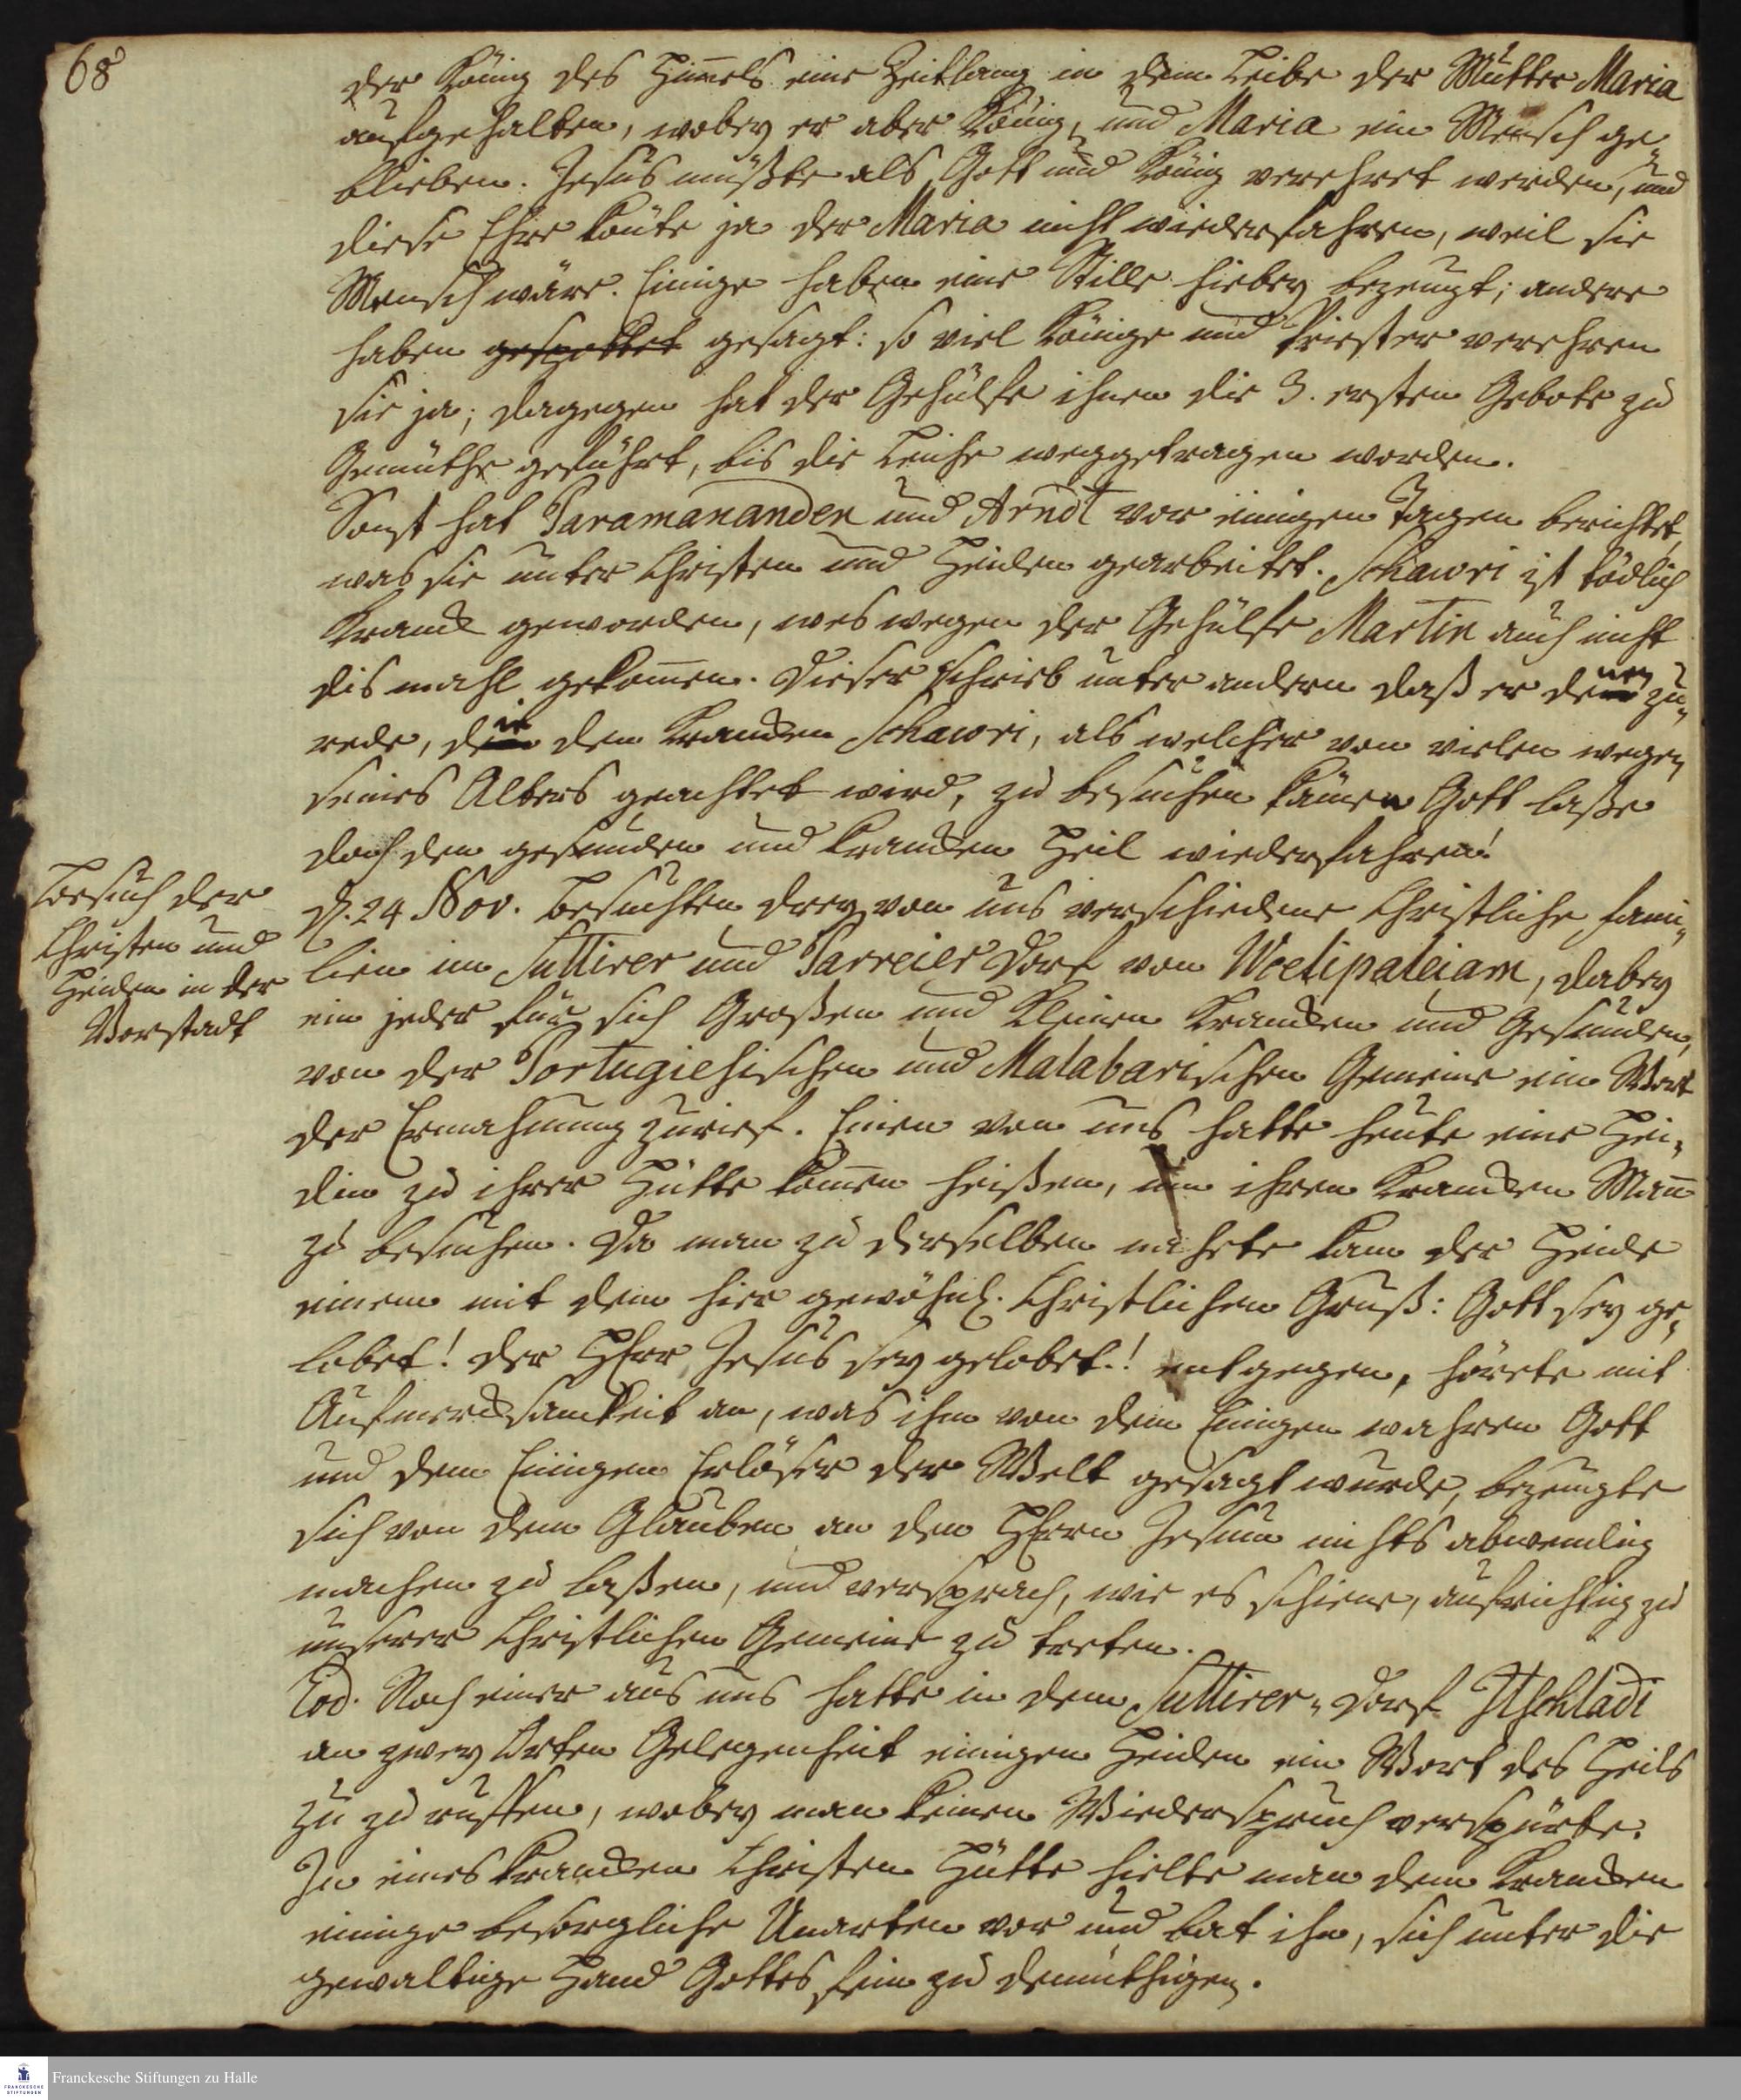 68
der König des Him̄els eine Zeitlang in dem Leibe der Mutter Maria
aufgehalten, wobey er aber König, und Maria ein Mensch ge-
blieben. Jesus müßte als Gott und König verehret werden, und
diese Ehre kön̄te ja der Maria nicht wiederfahren, weil sie
Mensch wäre. Einige haben eine Stille hiebey bezeugt; andere
haben gespottet gesagt: so viel Könige und Priester verehren
sie ja; dagegen hat der Gehülfe ihnen die 3. ersten Gebote zu
Gemüthe geführt, bis die Leiche weggetragen worden.
Sonst hat Paramananden und Arndt vor einigen Tagen berichtet,
was sie unter Christen und Heiden gearbeitet. Schawri ist tödlich
kranck geworden, weswegen der Gehülfe Martin auch nicht
dis mahl gekom̄en. Dieser schrieb unter andern daß er denen zu-
rede, die den krancken Schawri, als welcher von vielen wegen
seines Alters geachtet wird, zu besuchen kämen Gott laße
doch den gesunden und krancken Heil wiederfahren!
Besuch der
Christen und
Heiden in der
Vorstadt
d. 24 Nov. besuchten drey von uns verschiedene Christliche Fami-
lien im Suttirer und Parreier Dorf von Woelipaleiam, dabey
ein jeder für sich Großen und Kleinen Krancken und Gesunden,
von der Portugiesischen und Malabarischen Gemeine ein Wort
der Ermahnung zurief. Einen von uns hatte heute eine Hei-
din zu ihrer Hütte kom̄en heißen, um ihren krancken Man̄
zu besuchen. Da man zu derselben nahete kam der Heide
einem mit dem hier gewöhnl. Christlichen Gruß: Gott sey ge-
lobet! der HErr Jesus sey gelobet! entgegen, hörete mit
Aufmercksamkeit an, was ihm von dem Einigen wahren Gott
und dem Einigen Erlöser der Welt gesagt wurde, bezeugte
sich von dem Glauben an den HErrn Jesum nichts abwendig
machen zu laßen, und versprach, wie es schiene, aufrichtig zu
unserer Christlichen Gemeine zu treten.
Eod. Noch einer aus uns hatte in dem Suttirer-Dorf Itschladi
an zwey Orten Gelegenheit einigen Heiden ein Wort des Heils
zu zu ruffen, wobey man keinen Wiederspruch verspürte.
In eines krancken Christen Hütte hielte man dem Krancken
einige besorgliche Unarten vor und bat ihn, sich unter die
gewaltige Hand Gottes fein zu demüthigen.
Franckesche Stiftungen zu Halle
FRANCKESCHE
STIFTUNGEN